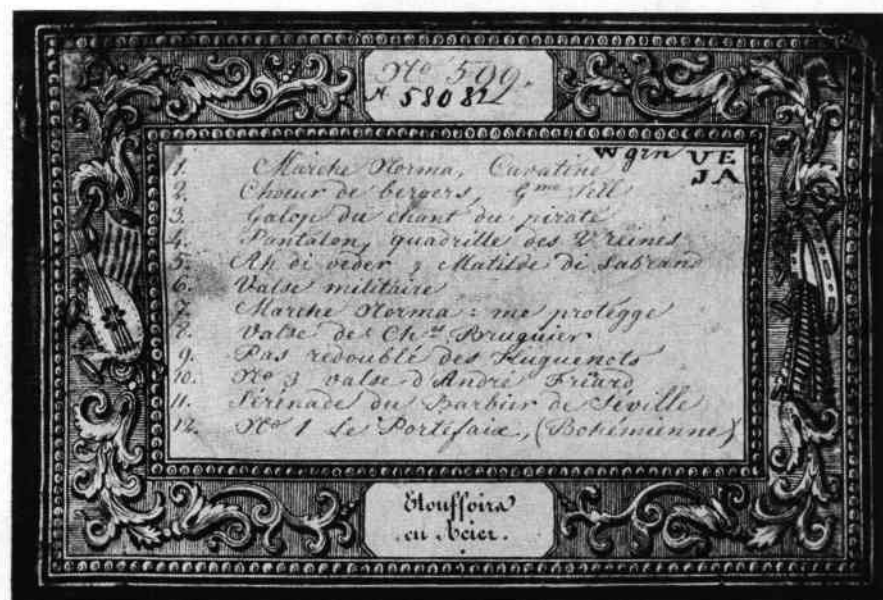 No 599.
N. 58082
W grn VE
JA
1. Marche Norma, Cavatine
2. Choeur de bergers, Gme Tell
3. Galop du chant du pirate
4. Pantalon, quadrille des V reines
5. Ah di veder, Matilde di Sabrand
6. Valse militaire
7. Marche Norma: me protégge
8. Valse de Chs Bruguier
9. Pas redoublé des Huguenots
10. No 3 valse d'André Friard
11. Sérénade du Barbier de Séville
12. No 1 Le Portefaix, (Bohémienne)
Etouffoirs
en Acier.